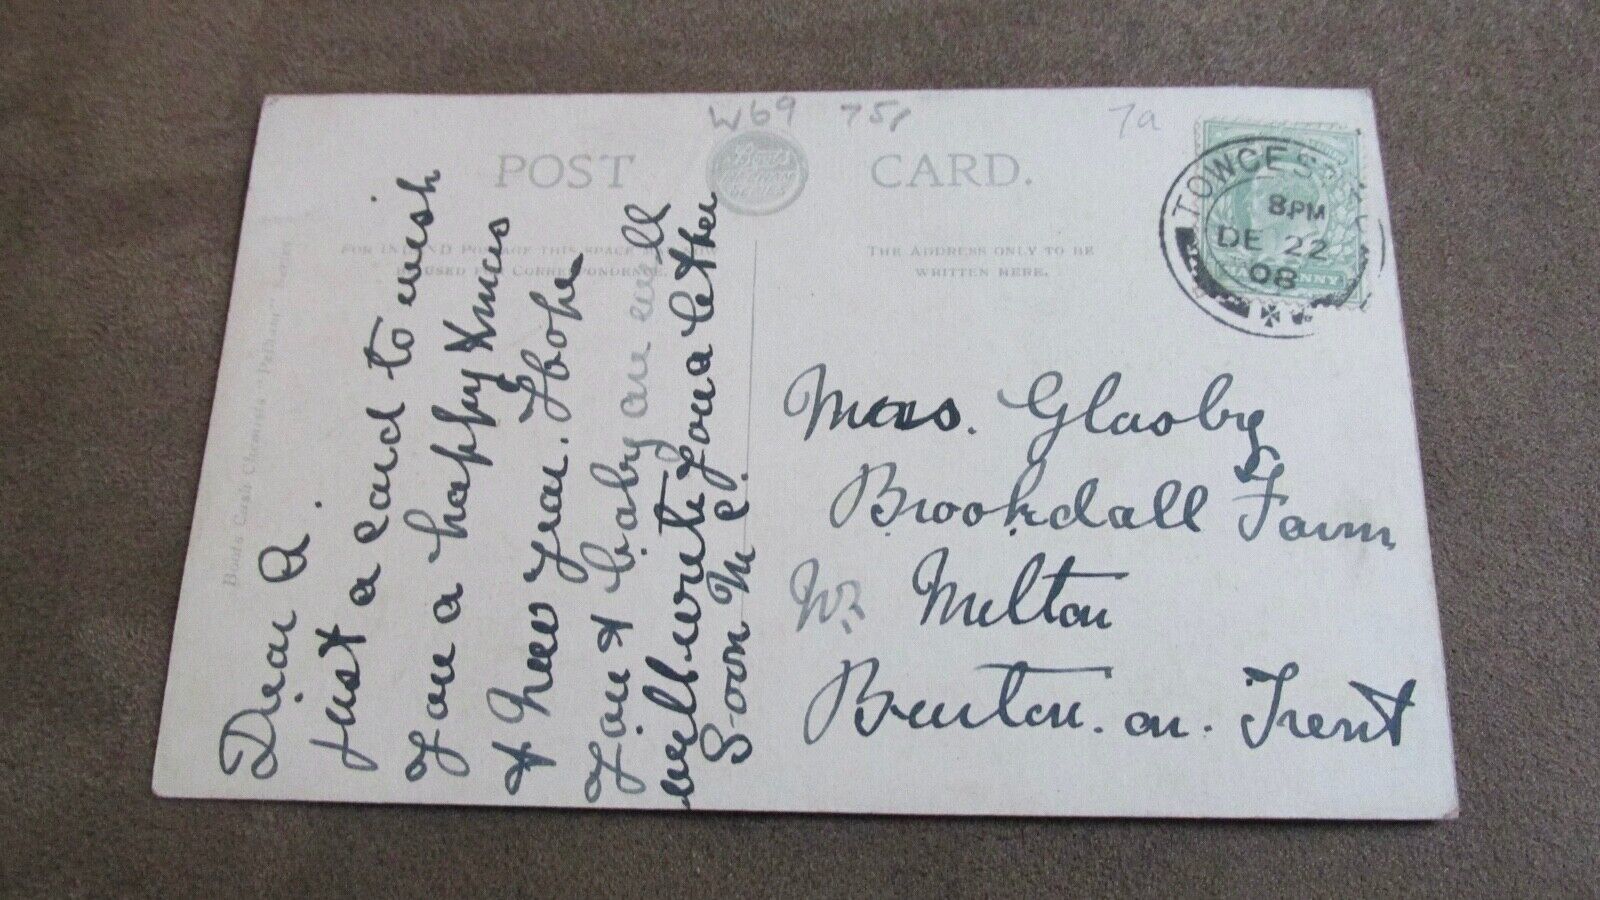 W69 75p
7a
POST CARD.
FOR INLAND POSTAGE THIS SPACE
BE USED FOR CORRESPONDENCE.
THE ADDRESS ONLY TO BE
WRITTEN HERE.
TOWCES
8PM
DE 22
08
Boots Cash Chemists "Pelham" Series
Dear A.
just a card to wish
you a happy Xmas
& New year. I hope
you & baby are well
will write you a letter
soon M C.
Mrs. Glasby
Brookdall Farm
Nr. Melton
Burton. on. Trent